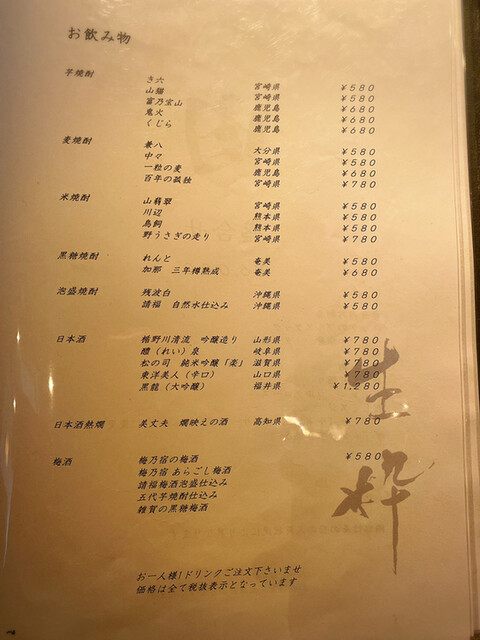 お飲み物
芋焼酎 き六 宮崎県 ¥580
山猫 宮崎県 ¥580
富乃宝山 鹿児島 ¥680
鬼火 鹿児島 ¥680
くじら 鹿児島 ¥680
麦焼酎 兼八 大分県 ¥580
中々 宮崎県 ¥580
一粒の麦 鹿児島 ¥680
百年の孤独 宮崎県 ¥780
米焼酎 山翡翠 宮崎県 ¥580
川辺 熊本県 ¥580
鳥飼 熊本県 ¥580
野うさぎの走り 宮崎県 ¥780
黒糖焼酎 れんと 奄美 ¥580
加那 三年樽熟成 奄美 ¥680
泡盛焼酎 残波白 沖縄県 ¥580
請福 自然水仕込み 沖縄県 ¥580
日本酒 楯野川清流 吟醸造り 山形県 ¥780
醴(れい)泉 岐阜県 ¥780
松の司 純米吟醸「楽」 滋賀県 ¥780
東洋美人(辛口) 山口県 ¥780
黒龍(大吟醸) 福井県 ¥1,280
日本酒熱燗 美丈夫 燗映えの酒 高知県 ¥780
梅酒 梅乃宿の梅酒 ¥580
梅乃宿 あらごし梅酒
請福梅酒泡盛仕込み
五代芋焼酎仕込み
雑賀の黒糖梅酒
生粋
お一人様1ドリンクご注文下さいませ
価格は全て税抜表示となっています